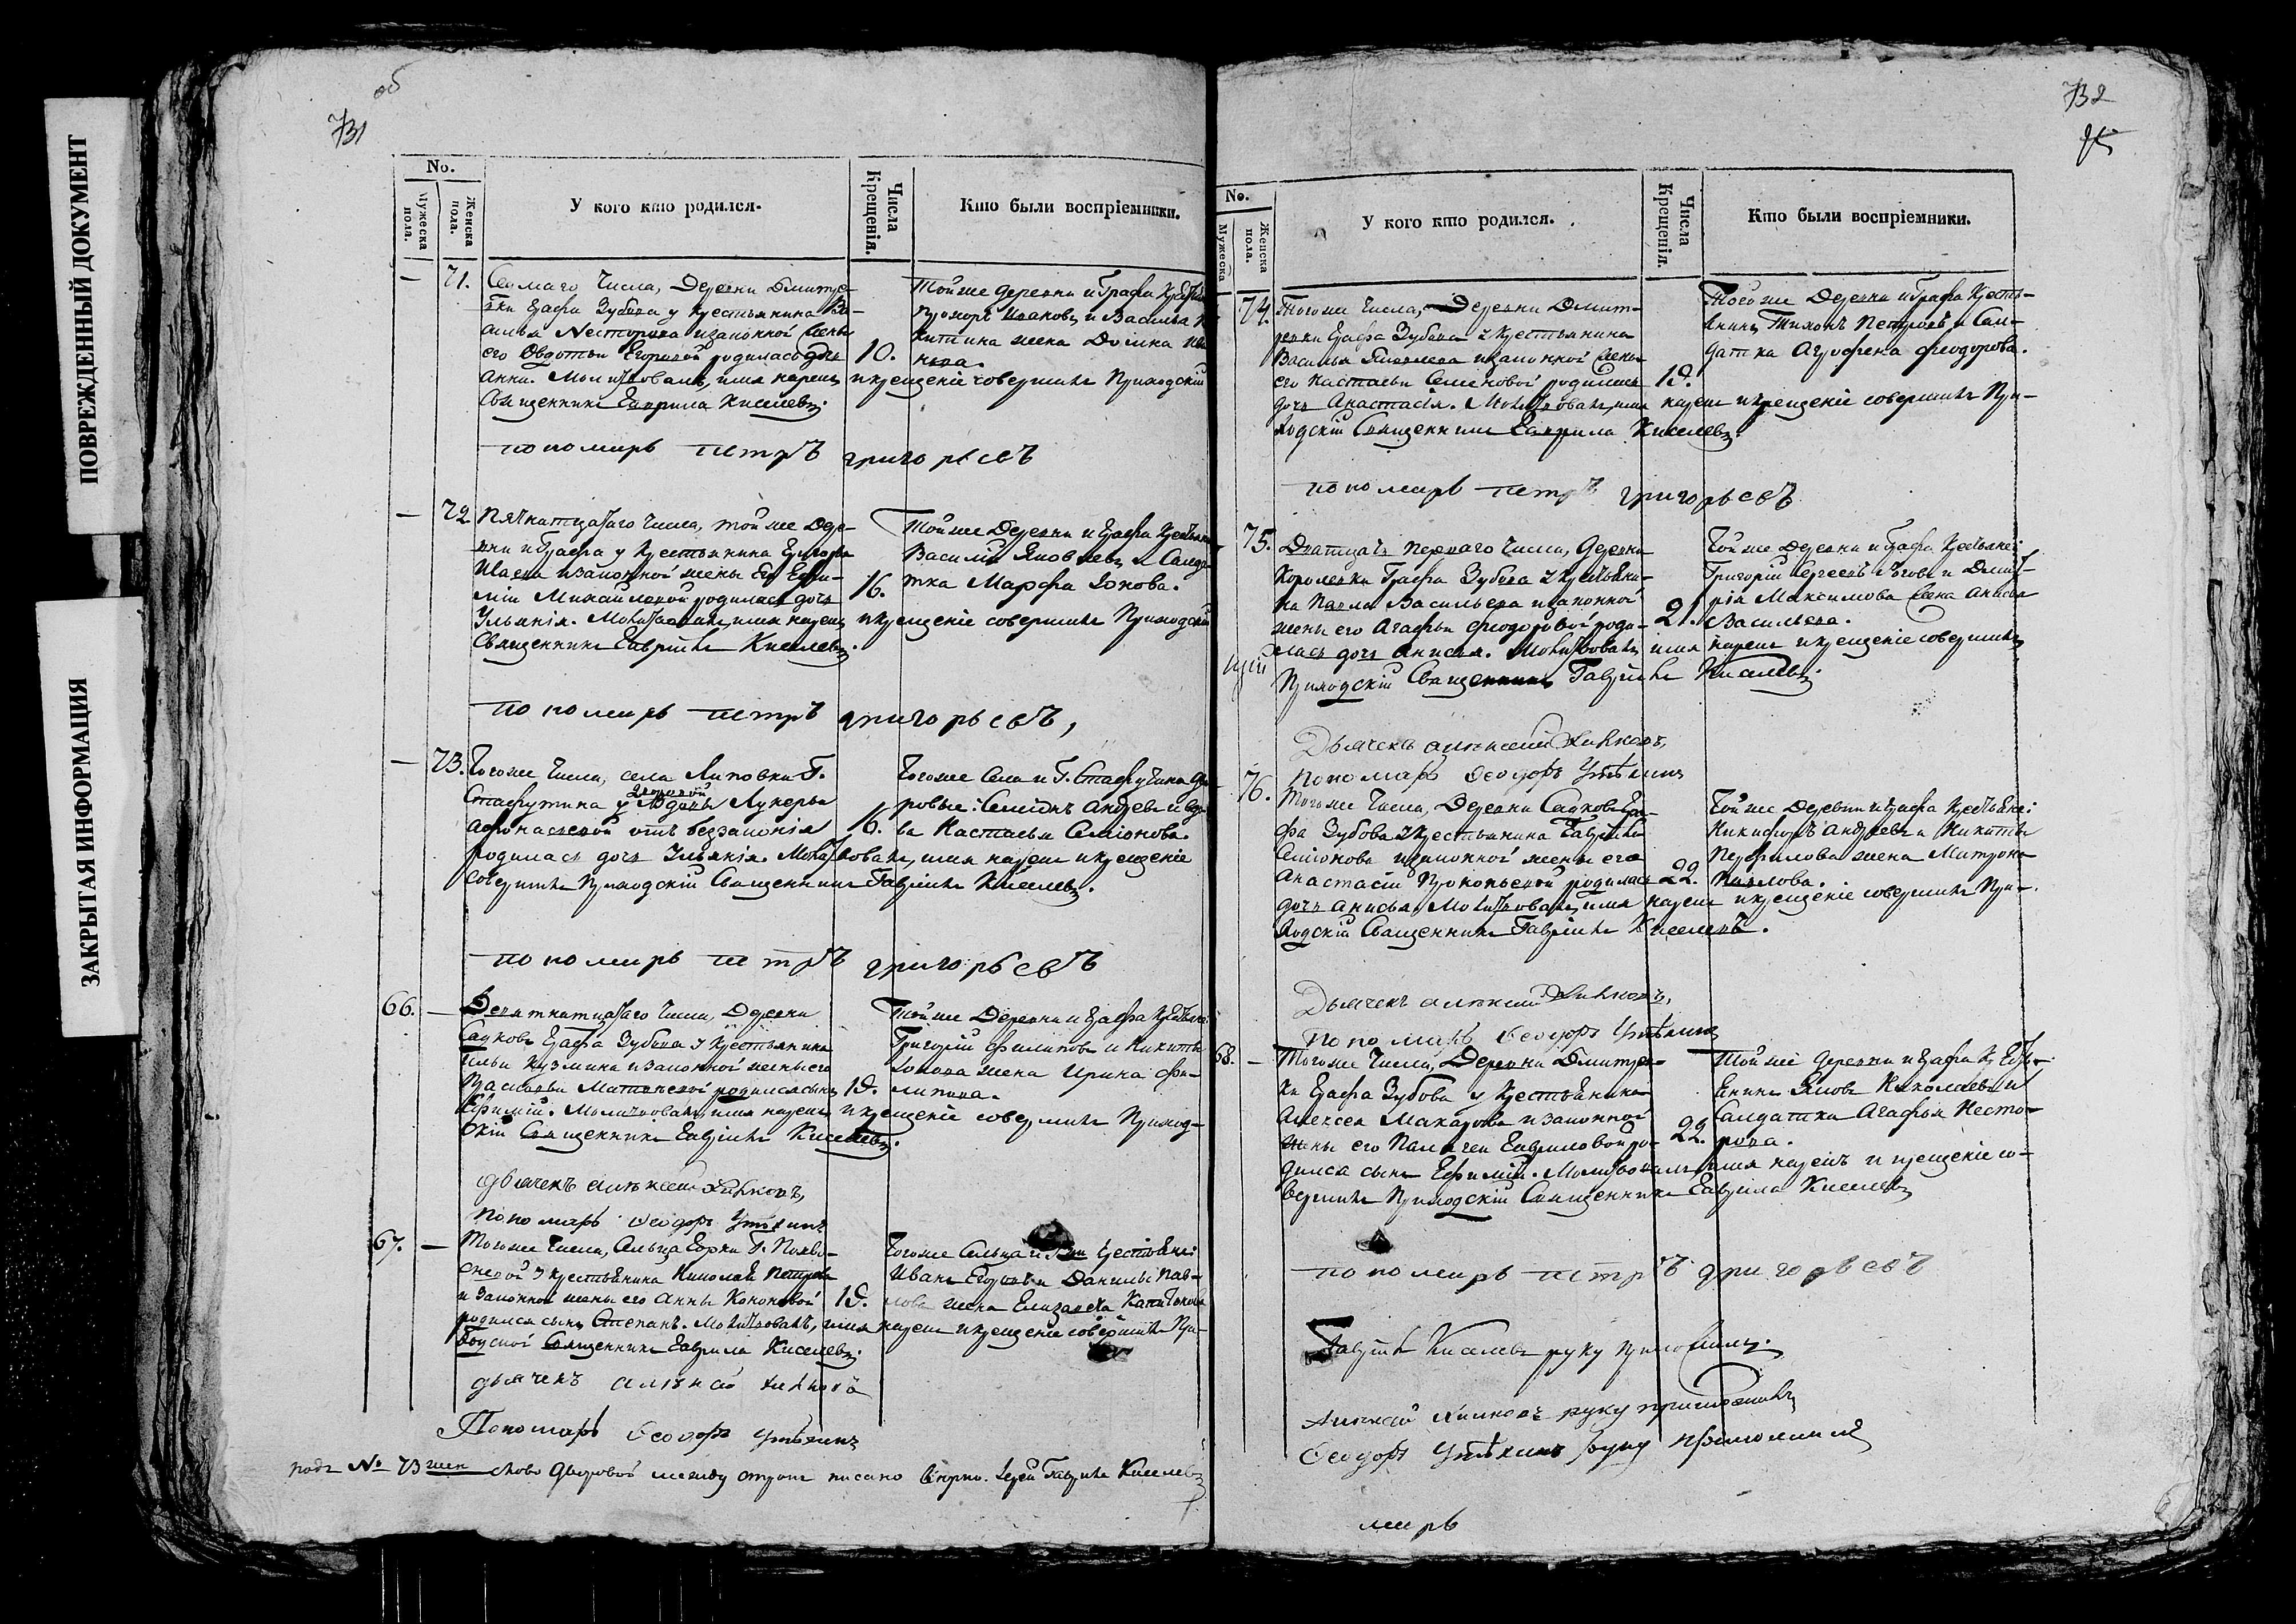 ПОВРЕЖДЕННЫЙ ДОКУМЕНТ
ЗАКРЫТАЯ ИНФОРМАЦИЯ
об
731
No.
Мужеска пола.
Женска пола.
У кого кто родился.
Числа Крещенія.
Кто были воспріемники.
71.
Седмаго Числа, Деревни Дмитре-
вки Графа Зубова у Крестьянина Ва-
силья Нестерова и законной жены
его Овдотьи Егоровой родилась дочь
Анна. Молитвовалъ, имя нарекъ и крещеніе совершилъ Приходскій
Священникъ Гаврила Киселевъ.
10.
Тойже деревни и Графа
Прохоръ Ивановъ и Василья
китина жена Домна
нова.
пономарь петръ григорьевъ
72
Пятнатцатаго Числа, тойже Дере-
вни и Графа у Крестьянина Григорья
Исаева и законной жены Его Ефи-
міи Михайловой родилась дочь
Ульянія. Молитвовалъ, имя нарекъ и крещеніе совершилъ Приходскій
Священникъ Гавріилъ Киселевъ.
16.
Тойже Деревни и Графа
Василій Яковлевъ и Салда-
тка Марфа Іонова.
пономарь петръ григорьевъ,
73.
Тогоже Числа, села Липовки Г.
Стафутина у дворовой Вдовы Лукерьи
Афонасьевой отъ беззаконія
родилась дочь Ульянія. Молитвовалъ, имя нарекъ и крещеніе
совершилъ Приходскій Священникъ Гавріилъ Киселевъ.
16.
Тогоже Села и Г. Стафутина дво-
ровые: Семіонъ Андреевъ и вдо-
ва Настасья Семіонова.
пономарь петръ григорьевъ
66.
Девятнатцатаго Числа, Деревни
Садковъ Графа Зубова у Крестьянина
Ильи Кузмина и законной жены его
Васильевой родился сынъ
Ефимій. Молитвовалъ, имя нарекъ и крещеніе совершилъ Приход-
скій Священникъ Гавріилъ Киселевъ.
19.
Тойже Деревни и Графа
Григорій Филиповъ и Никиты
Іонова жена Ирина Фи-
липова.
дьячекъ алексей
пономарь Феодоръ Утѣхинъ
67.
Тогоже Числа, Сельца Г.
у крестьянина Николая Петрова
и законной жены его Анны Кононовой
родился сынъ Степанъ. Молитвовалъ, имя нарекъ и крещеніе совершилъ При-
ходской Священникъ Гаврила Киселевъ.
19.
Тогоже Сельца и крестьяне:
Иванъ Егоровъ и Данилы Пав-
лова жена Елизавета
дьячекъ алексей
Пономарь Феодоръ Утѣхинъ
подъ № 73 жен слово дворовой между строк писано верно. Іерей Гавріилъ Киселевъ
732
No.
Мужеска
Женска пола.
У кого кто родился.
Числа Крещенія.
Кто были воспріемники.
74.
Тогоже Числа, Деревни Дмит-
ревки Графа Зубова у крестьянина
Василья Яковлева и законной жены
его Настасьи Семеновой родилась
дочь Анастасія. Молитвовалъ, имя нарекъ и крещеніе совершилъ При-
ходскій Священникъ Гаврила Киселевъ.
19.
Тогоже Деревни и Графа Кресть-
янинъ Тихонъ Петровъ и Сал-
датка Агрофена Феодорова.
пономарь петръ григорьевъ
75.
Дватцать перваго Числа, Деревни
Королевки Графа Зубова у Крестьяни-
на Павла Васильева и законной
жены его Агафьи Феодоровой роди-
лась дочь Анисья. Молитвовалъ имя нарекъ и крещеніе совершилъ
Приходскій Священникъ Гавріилъ Киселевъ.
21.
Тойже Деревни и Графа Крестьяне:
Григорій Сергеевъ и Дмит-
рія Максимова жена Анисья
Васильева.
Дьячекъ алексей
Пономарь Феодоръ Утѣхинъ
76.
Тогоже Числа, Деревни Садковъ Гра-
фа Зубова у крестьянина Гаврила
Семіонова и законной жены его
Анастасіи Прокопьевой родилась
дочь Анисья. Молитвовалъ, имя нарекъ и крещеніе совершилъ При-
ходскій Священникъ Гавріилъ Киселевъ.
22.
Тойже Деревни и Графа Крестьяне:
Никифоръ Андреевъ и Никиты
жена Матрона
Павлова.
Дьячекъ алексей
Пономарь Феодоръ Утѣхинъ
68.
Тогоже Числа, Деревни Дмитрев-
ки Графа Зубова у Крестьянина
Алексея Макарова и законной
жены его Палагеи Гавриловой ро-
дился сынъ Ефимій. Молитвовалъ, имя нарекъ и крещеніе со-
вершилъ Приходскій Священникъ Гаврила Киселевъ
22.
Тойже деревни и Графа Кресть-
янинъ Яковъ Николаевъ и
Салдатка Агафья Несте-
рова.
пономарь петръ григорьевъ
Гавріилъ Киселевъ руку приложилъ.
Алексей руку приложилъ
Феодоръ Утѣхинъ руку приложилъ